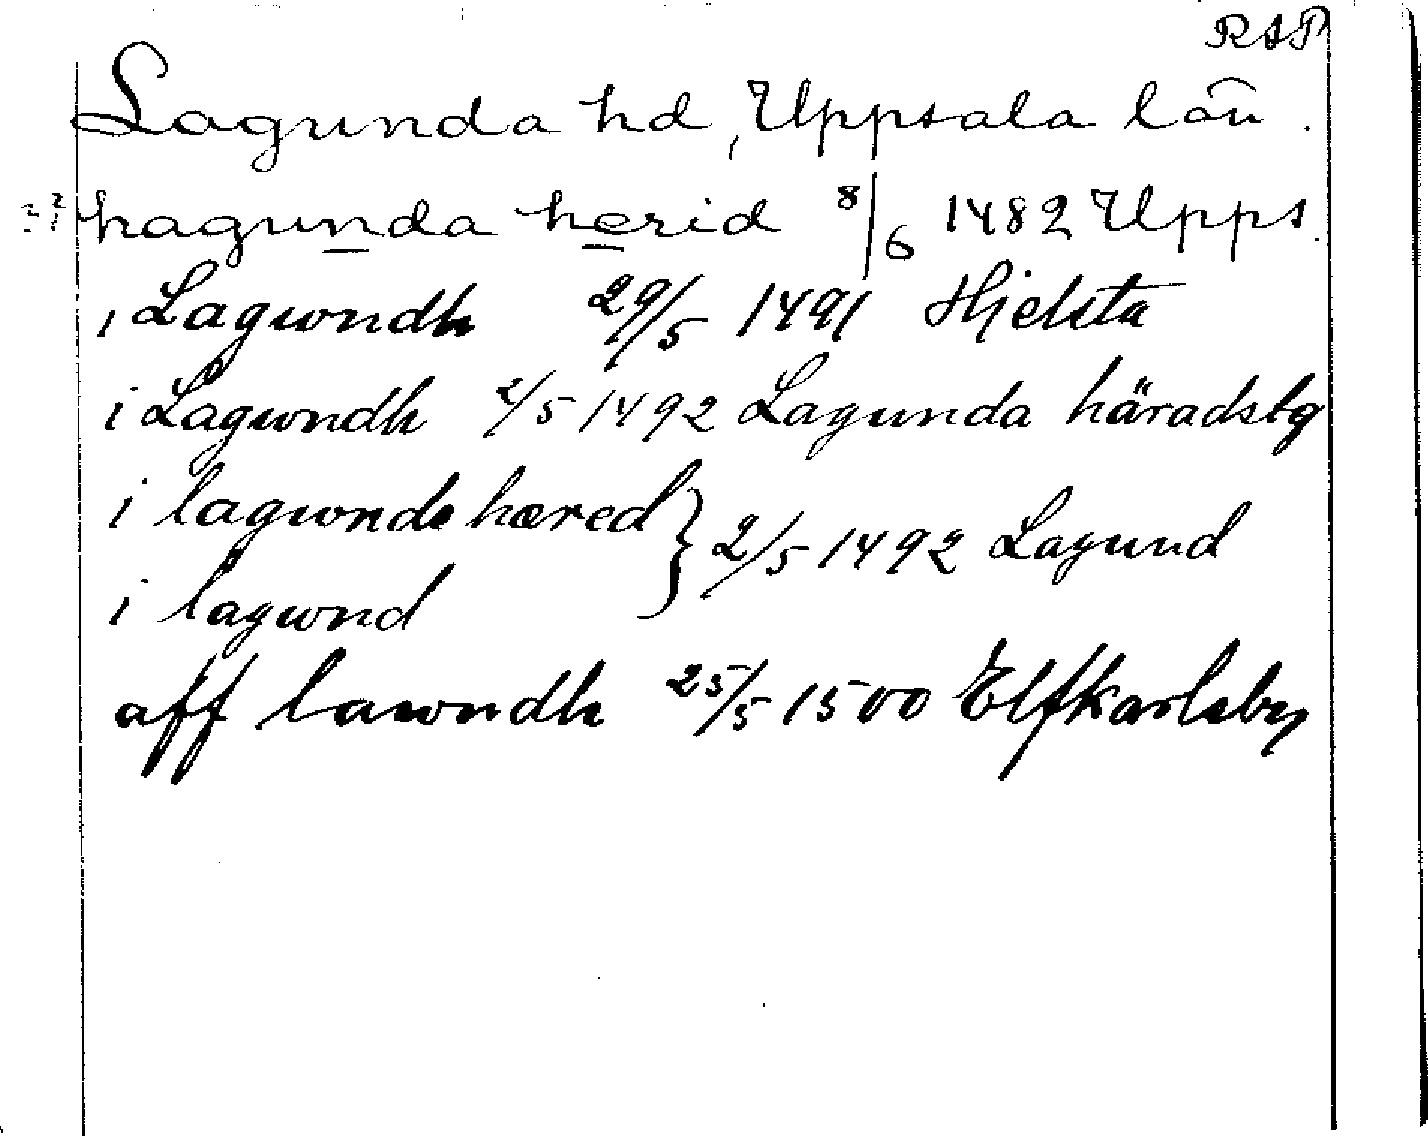 RAP
Lagunda hd, Uppsala län.
hagunda herid 8/6 1482 Upps.
i Lagwndh 29/5 1491 Hjelsta
i Lagwndh 2/5 1492 Lagunda häradstg
i lagwnde hæred } 2/5 1492 Lagund
i lagwnd
aff lawndh 25/5 1500 Elfkarleby